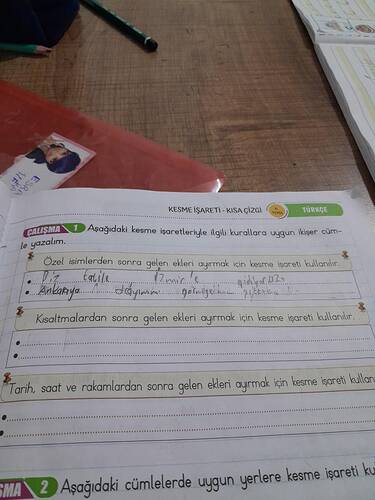 KESME İŞARETİ - KISA ÇİZGİ TÜRKÇE
ÇALIŞMA 1 Aşağıdaki kesme işaretleriyle ilgili kurallara uygun ikişer cüm-
le yazalım.
Özel isimlerden sonra gelen ekleri ayırmak için kesme işareti kullanılır.
Biz tatile İzmir'e gidiyoruz.
Ankaraya dayımın
Kısaltmalardan sonra gelen ekleri ayırmak için kesme işareti kullanılır.
Tarih, saat ve rakamlardan sonra gelen ekleri ayırmak için kesme işareti kullan
ŞMA 2 Aşağıdaki cümlelerde uygun yerlere kesme işareti ku